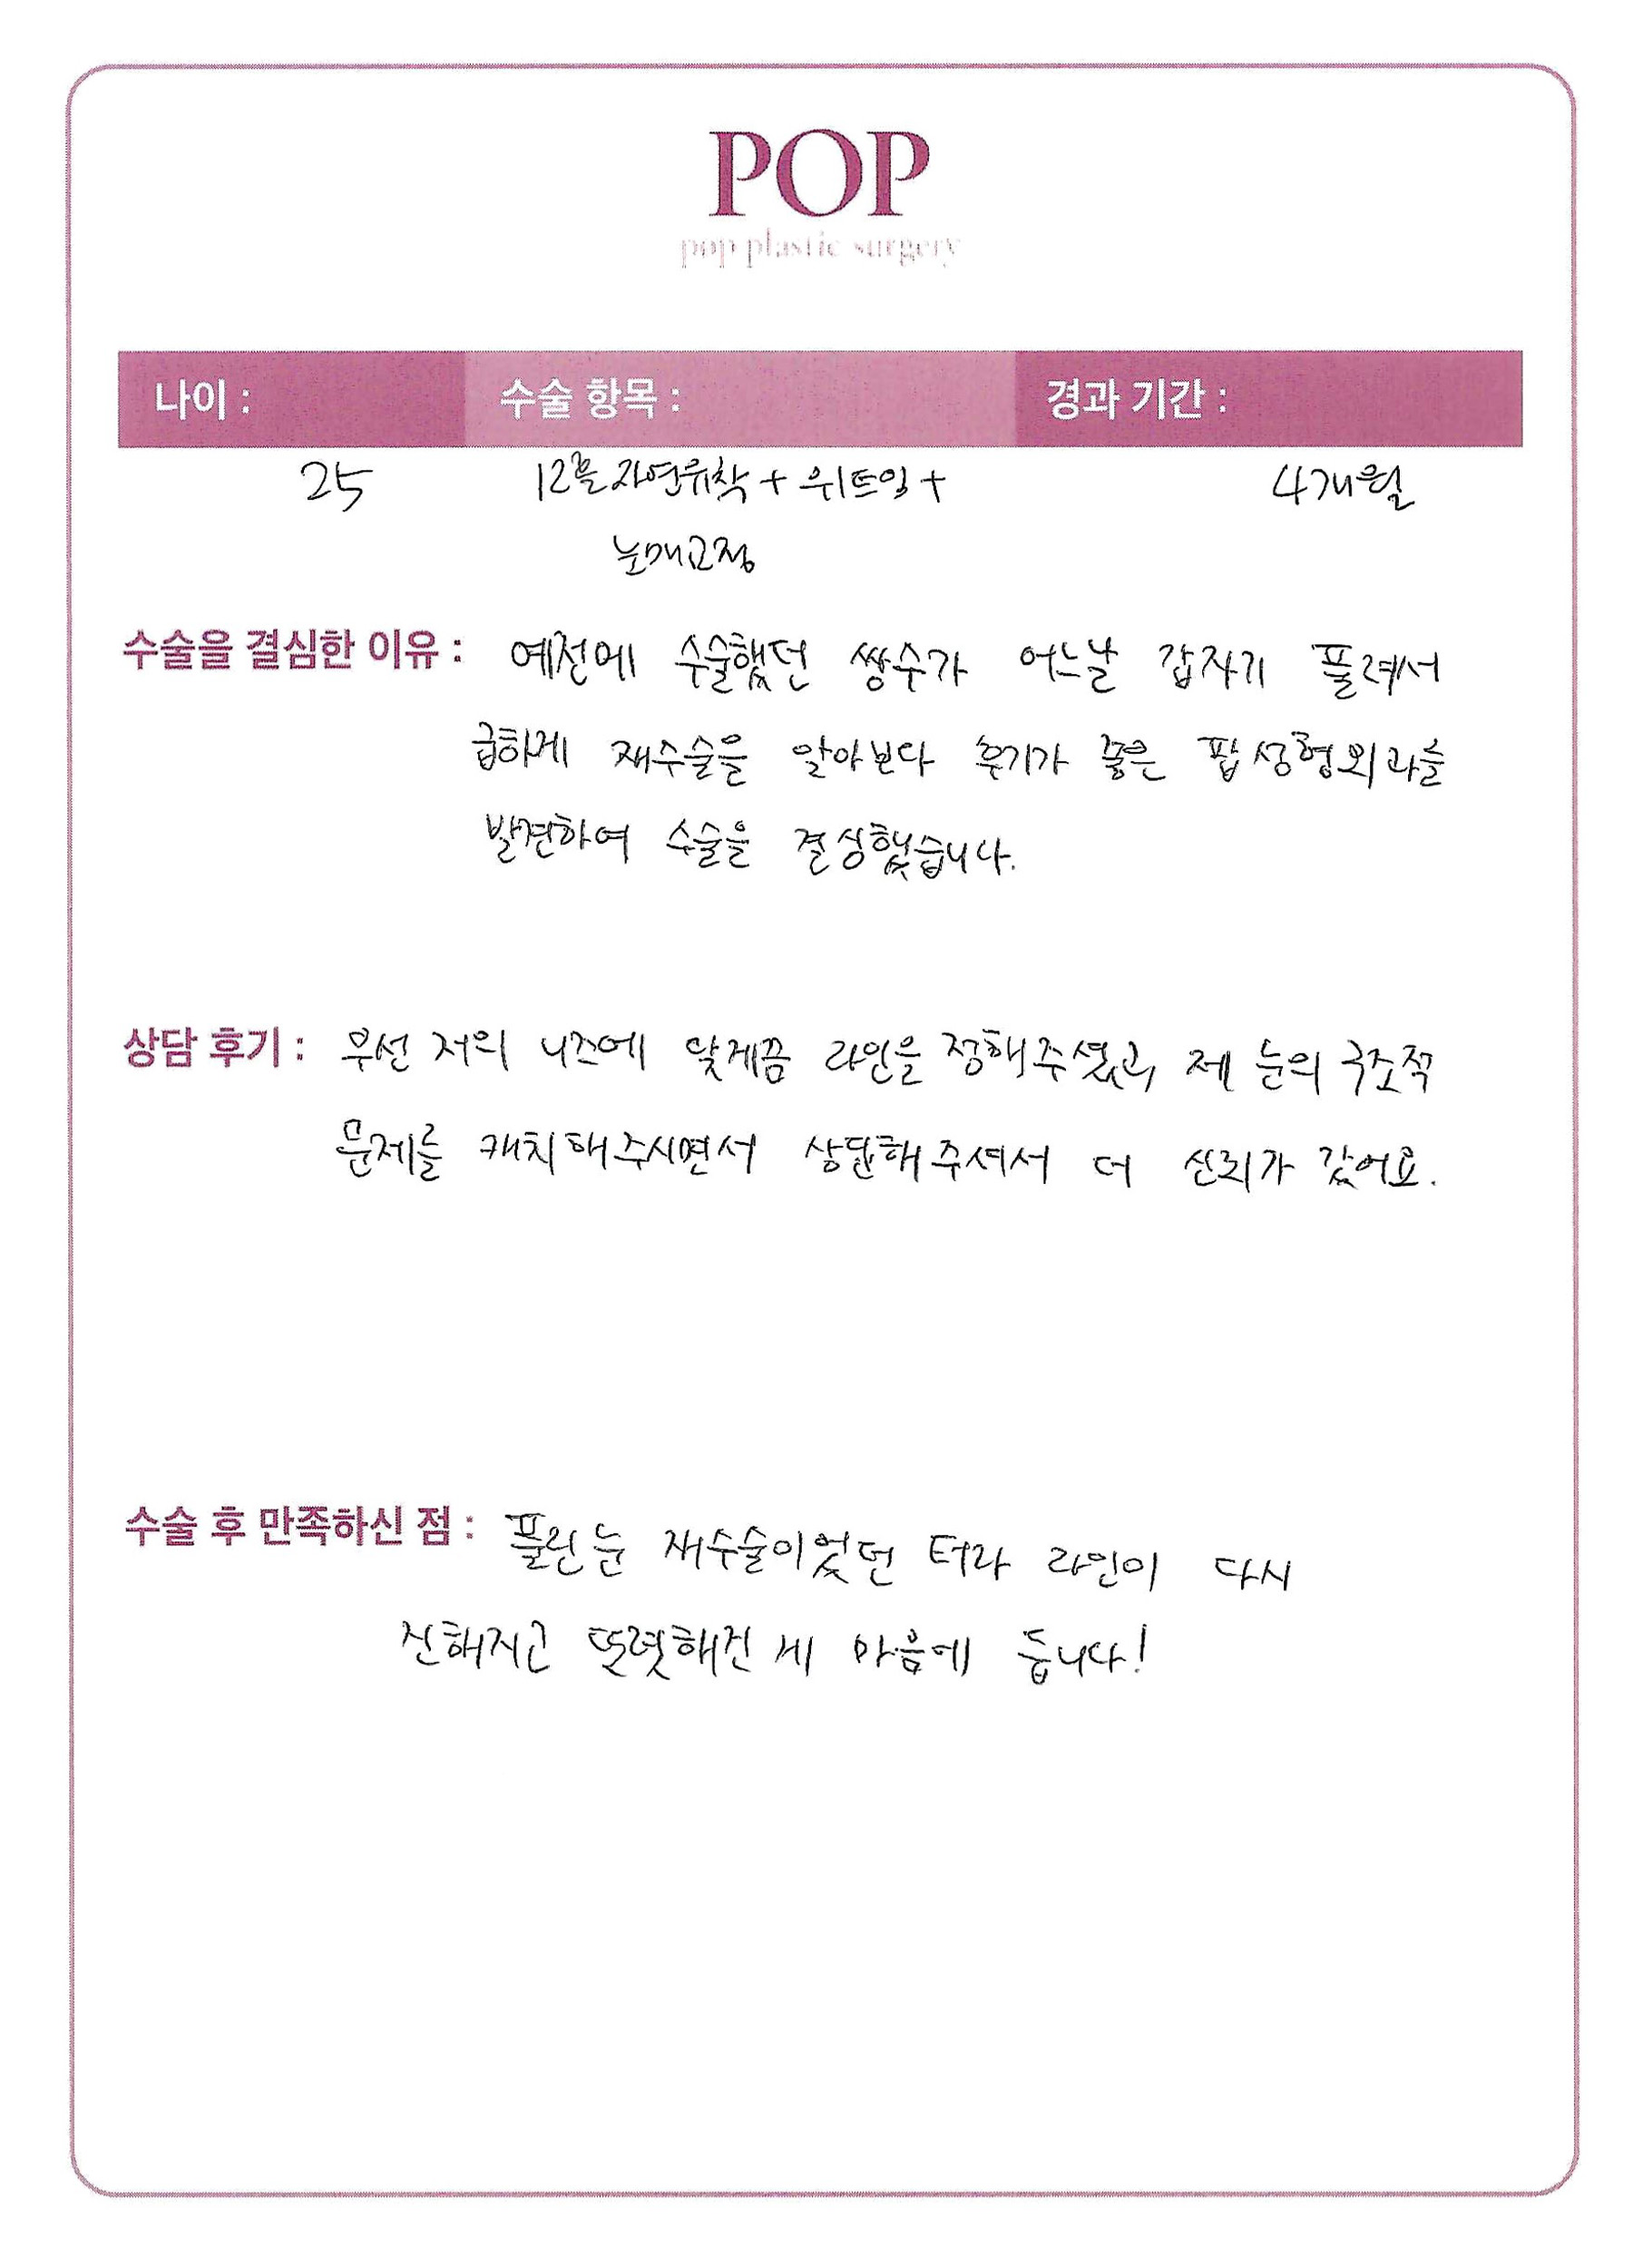 POP
pop plastic surgery
나이 : 수술 항목 : 경과 기간 :
25 12줄자연유착 + 위트임 + 4개월
눈매교정
수술을 결심한 이유 : 예전에 수술했던 쌍수가 어느날 갑자기 풀려서
급하게 재수술을 알아보다 후기가 좋은 팝성형외과를
발견하여 수술을 결심했습니다.
상담 후기 : 우선 저의 니즈에 맞게끔 라인을 정해주셨고, 제 눈의 구조적
문제를 캐치해주시면서 상담해주셔서 더 신뢰가 갔어요.
수술 후 만족하신 점 : 풀린눈 재수술이었던 터라 라인이 다시
진해지고 또렷해진 게 마음에 듭니다!